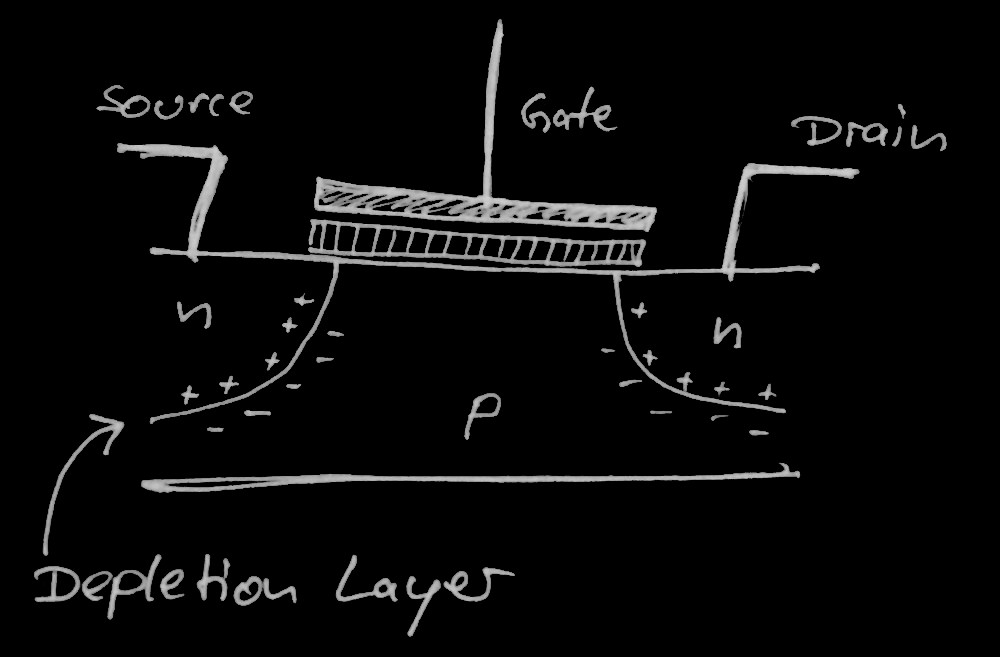 Source
Gate
Drain
n
+ + + + +
- - - - -
n
+ + + + + +
- - - - -
P
Depletion Layer